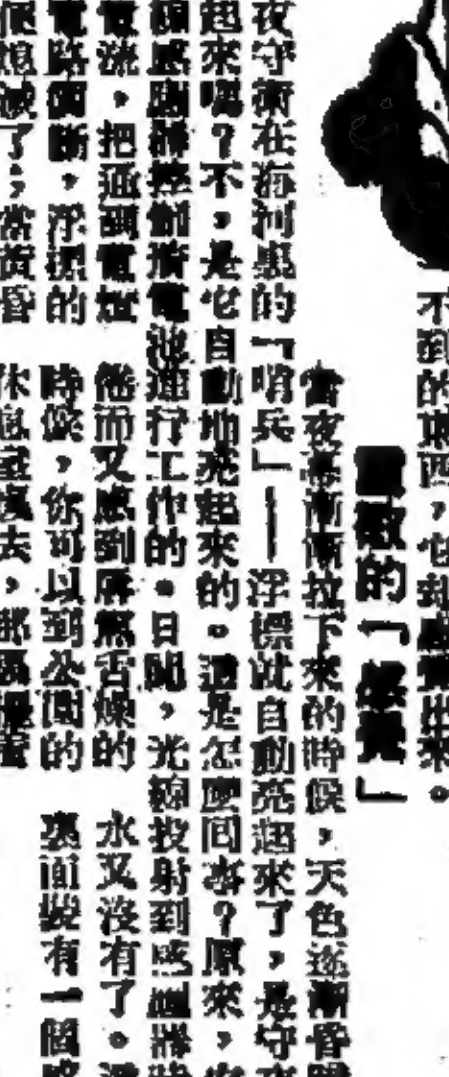 不到的東西，它却感覺出來。
靈敏的「感覺」
當夜幕漸漸拉下來的時候，天色逐漸昏
夜守衛在海河裏的「哨兵」——浮標就自動亮起來了，是守
起來嗎？不，是它自動地亮起來的。這是怎麼回事？原來，
線感應器控制着電池進行工作的。日間，光線投射到感應器
電流，把通到電燈
電路切斷，浮標的
便熄滅了；當黃昏
倦而又感到唇焦舌燥的
時候，你可以到公園的
休息室裏去，那裏擺着
水又沒有了。
裏面裝有一個